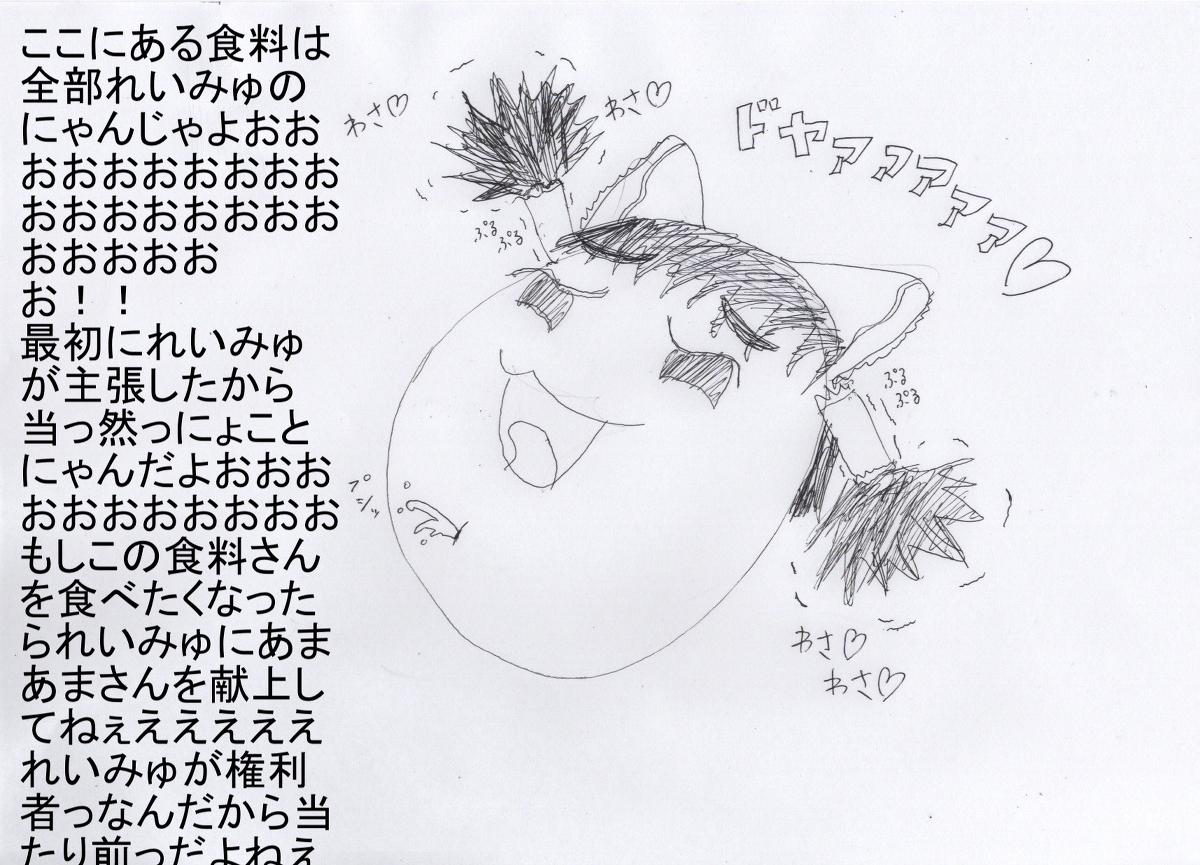 ここにある食料は
全部れいみゅの
にゃんじゃよおお
おおおおおおおお
おおおおおおおお
おおおおお
お！！
最初にれいみゅ
が主張したから
当っ然っにょこと
にゃんだよおおお
おおおおおおおお
もしこの食料さん
を食べたくなった
られいみゅにあま
あまさんを献上し
てねぇええええええ
れいみゅが権利
者っなんだから当
たり前っだよねぇ
わさ♡
わさ♡
ドヤァァァァァ♡
ぷる
ぷる
ぷる
ぷる
プシッ
わさ♡
わさ♡